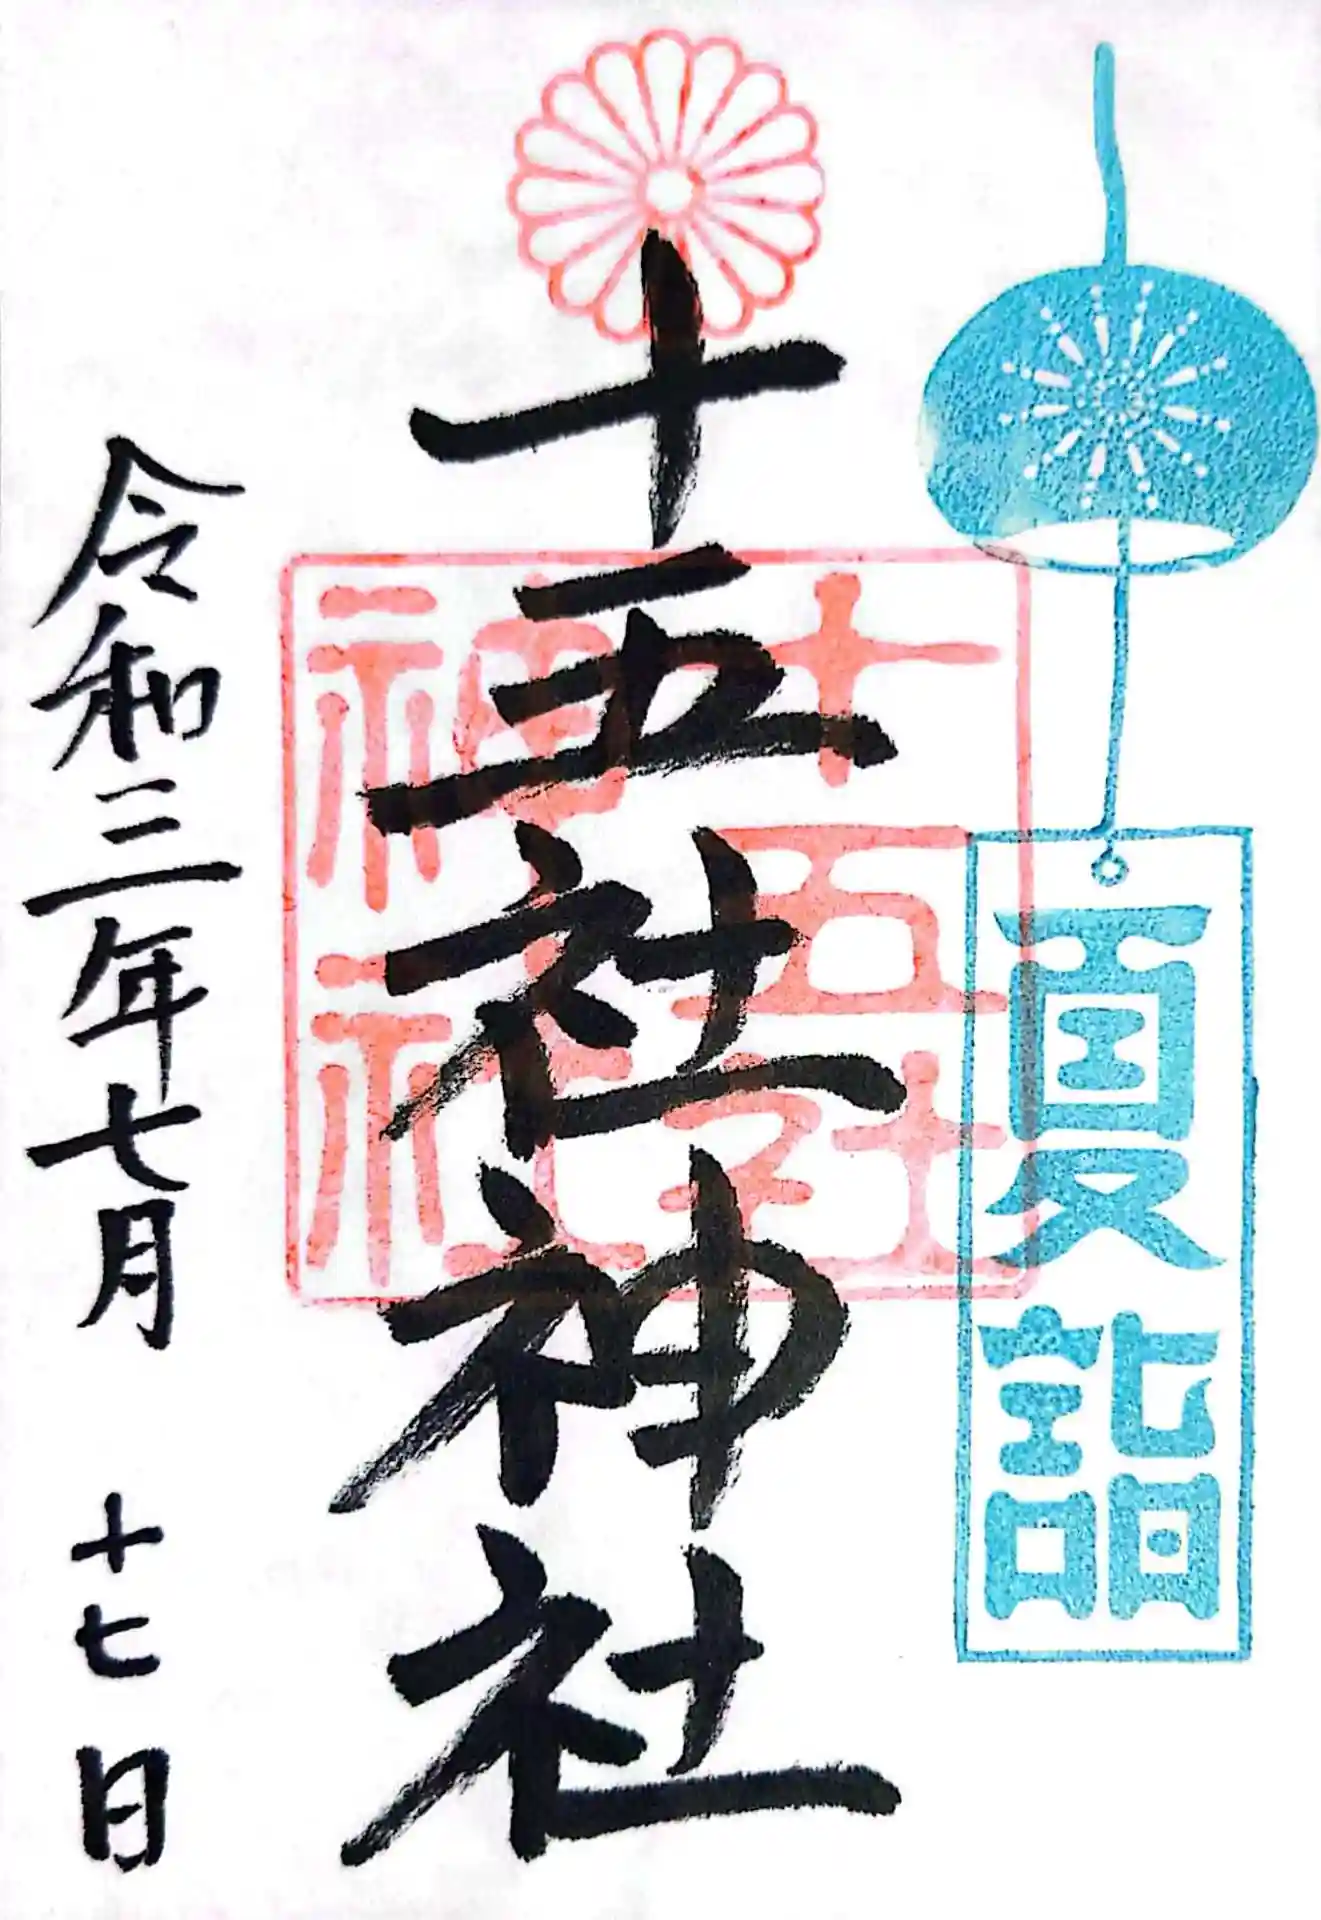 夏詣
十五社神社
十五社
神社
令和三年七月十七日